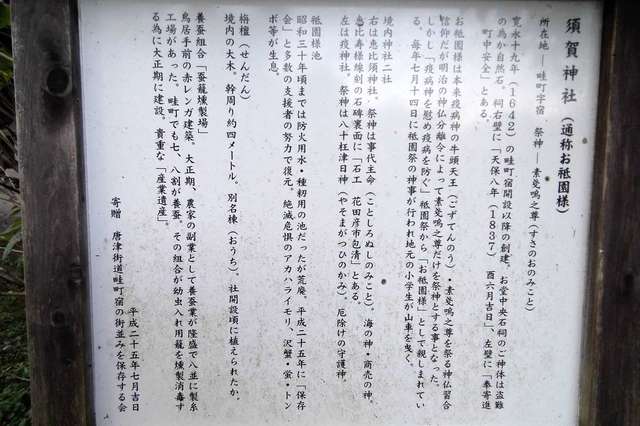 須賀神社(通称お祗園様)
所在地―畦町字宿 祭神―素戔嗚之尊(すさのおのみこと)
寛永十九年(1642)の畦町宿開設以降の創建。お堂中央石祠のご神体は盗難
の為か自然石。祠右壁に「天保八年(1837) 酉六月吉日」、左壁に「奉寄進
町中安全」とある。
お祗園様は本来疫病神の牛頭天王(ごずてんのう)・素戔嗚之尊を祭る神仏習合
信仰だが明治の神仏分離令によって素戔嗚之尊だけを祭神とする事となった。
しかし「疫病神を慰め疫病を防ぐ」祗園祭から「お祗園様」として親しまれてい
る。毎年七月十四日に祗園祭の神事が行われ地元の小学生が山車を曳く。
境内神社二社
右は恵比須神社。祭神は事代主命(ことしろぬしのみこと)。海の神・商売の神。
恵比寿様線刻の石碑裏面に「石工 花田彦市包清」とある。
左は疫神社。祭神は八十枉津日神(やそまがつひのかみ)。厄除けの守護神。
祗園様池
昭和三十年頃までは防火用水・種籾用の池だったが荒廃。平成二十五年に「保存
会」と多数の支援者の努力で復元。絶滅危惧のアカハライモリ、沢蟹・蛍・トン
ボ等が生息。
栴檀(せんだん)
境内の大木。幹周り約四メートル。別名楝(おうち)。社開設頃に植えられたか。
養蚕組合「蚕籠燻製場」
鳥居手前の赤レンガ建築。大正期、農家の副業として養蚕業が隆盛で八並に製糸
工場があった。畦町でも七、八割が養蚕。その組合が幼虫入れ用籠を燻製消毒す
る為に大正期に建設。貴重な「産業遺産」。
平成二十五年七月吉日
寄贈 唐津街道畦町宿の街並みを保存する会